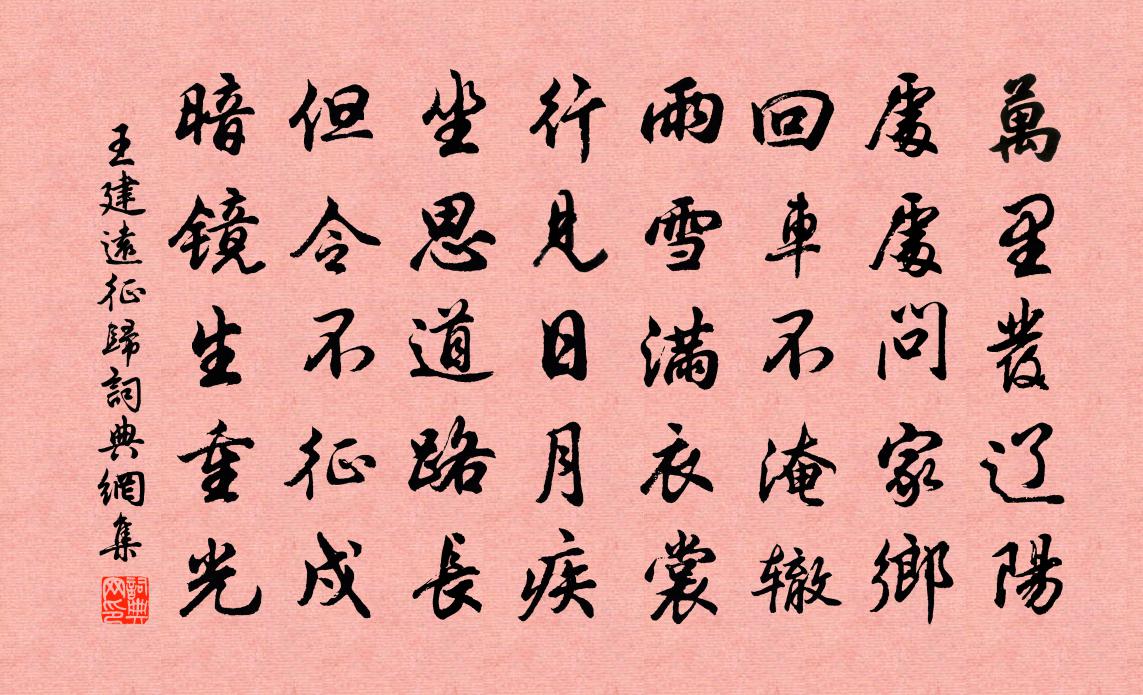 萬里發辽陽
處處問家鄉
回車不淹辙
雨雪满衣裳
行見日月疾
坐思道路長
但令不征戍
暗镜生重光
王建遠征歸詞典網集
詞典网印